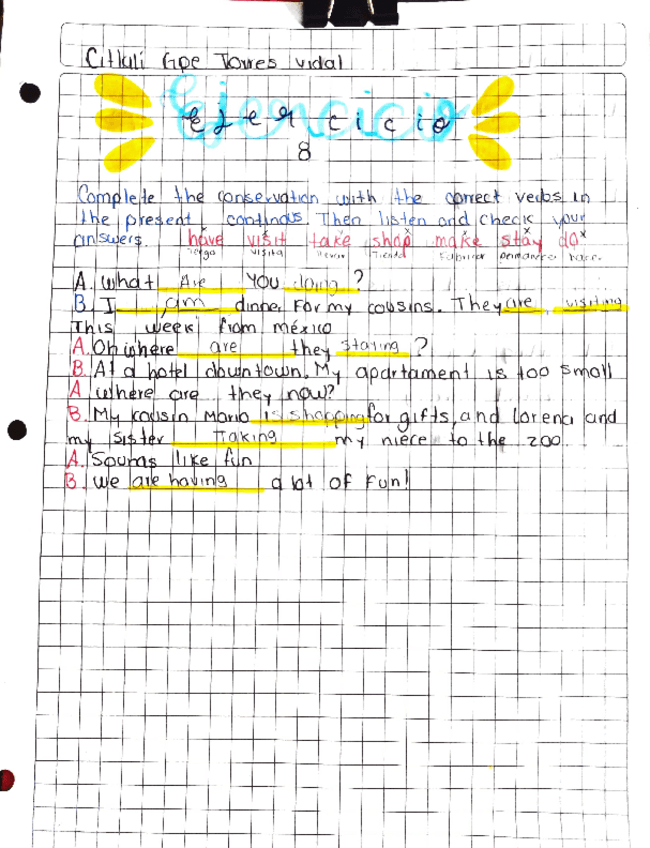 Citlali Gpe Torres Vidal
Ejercicio
ejercicio
8
Complete the conservation with the correct verbs in
the present continous. Then listen and check your
answers. have visit take shop make stay do
Tengo visita llevar Tienda Fabricar permanecer hacer
A. What Are you doing ?
B. I am dinner For my cousins. They are visiting
This week from méxico
A. Oh where are they staying ?
B. At a hotel downtown. My apartament is too small
A where are they now?
B. My cousin Mario is shopping for gifts, and Lorena and
my sister Taking my niece to the zoo.
A. Sounds like fun
B. we are having a lot of Fun!